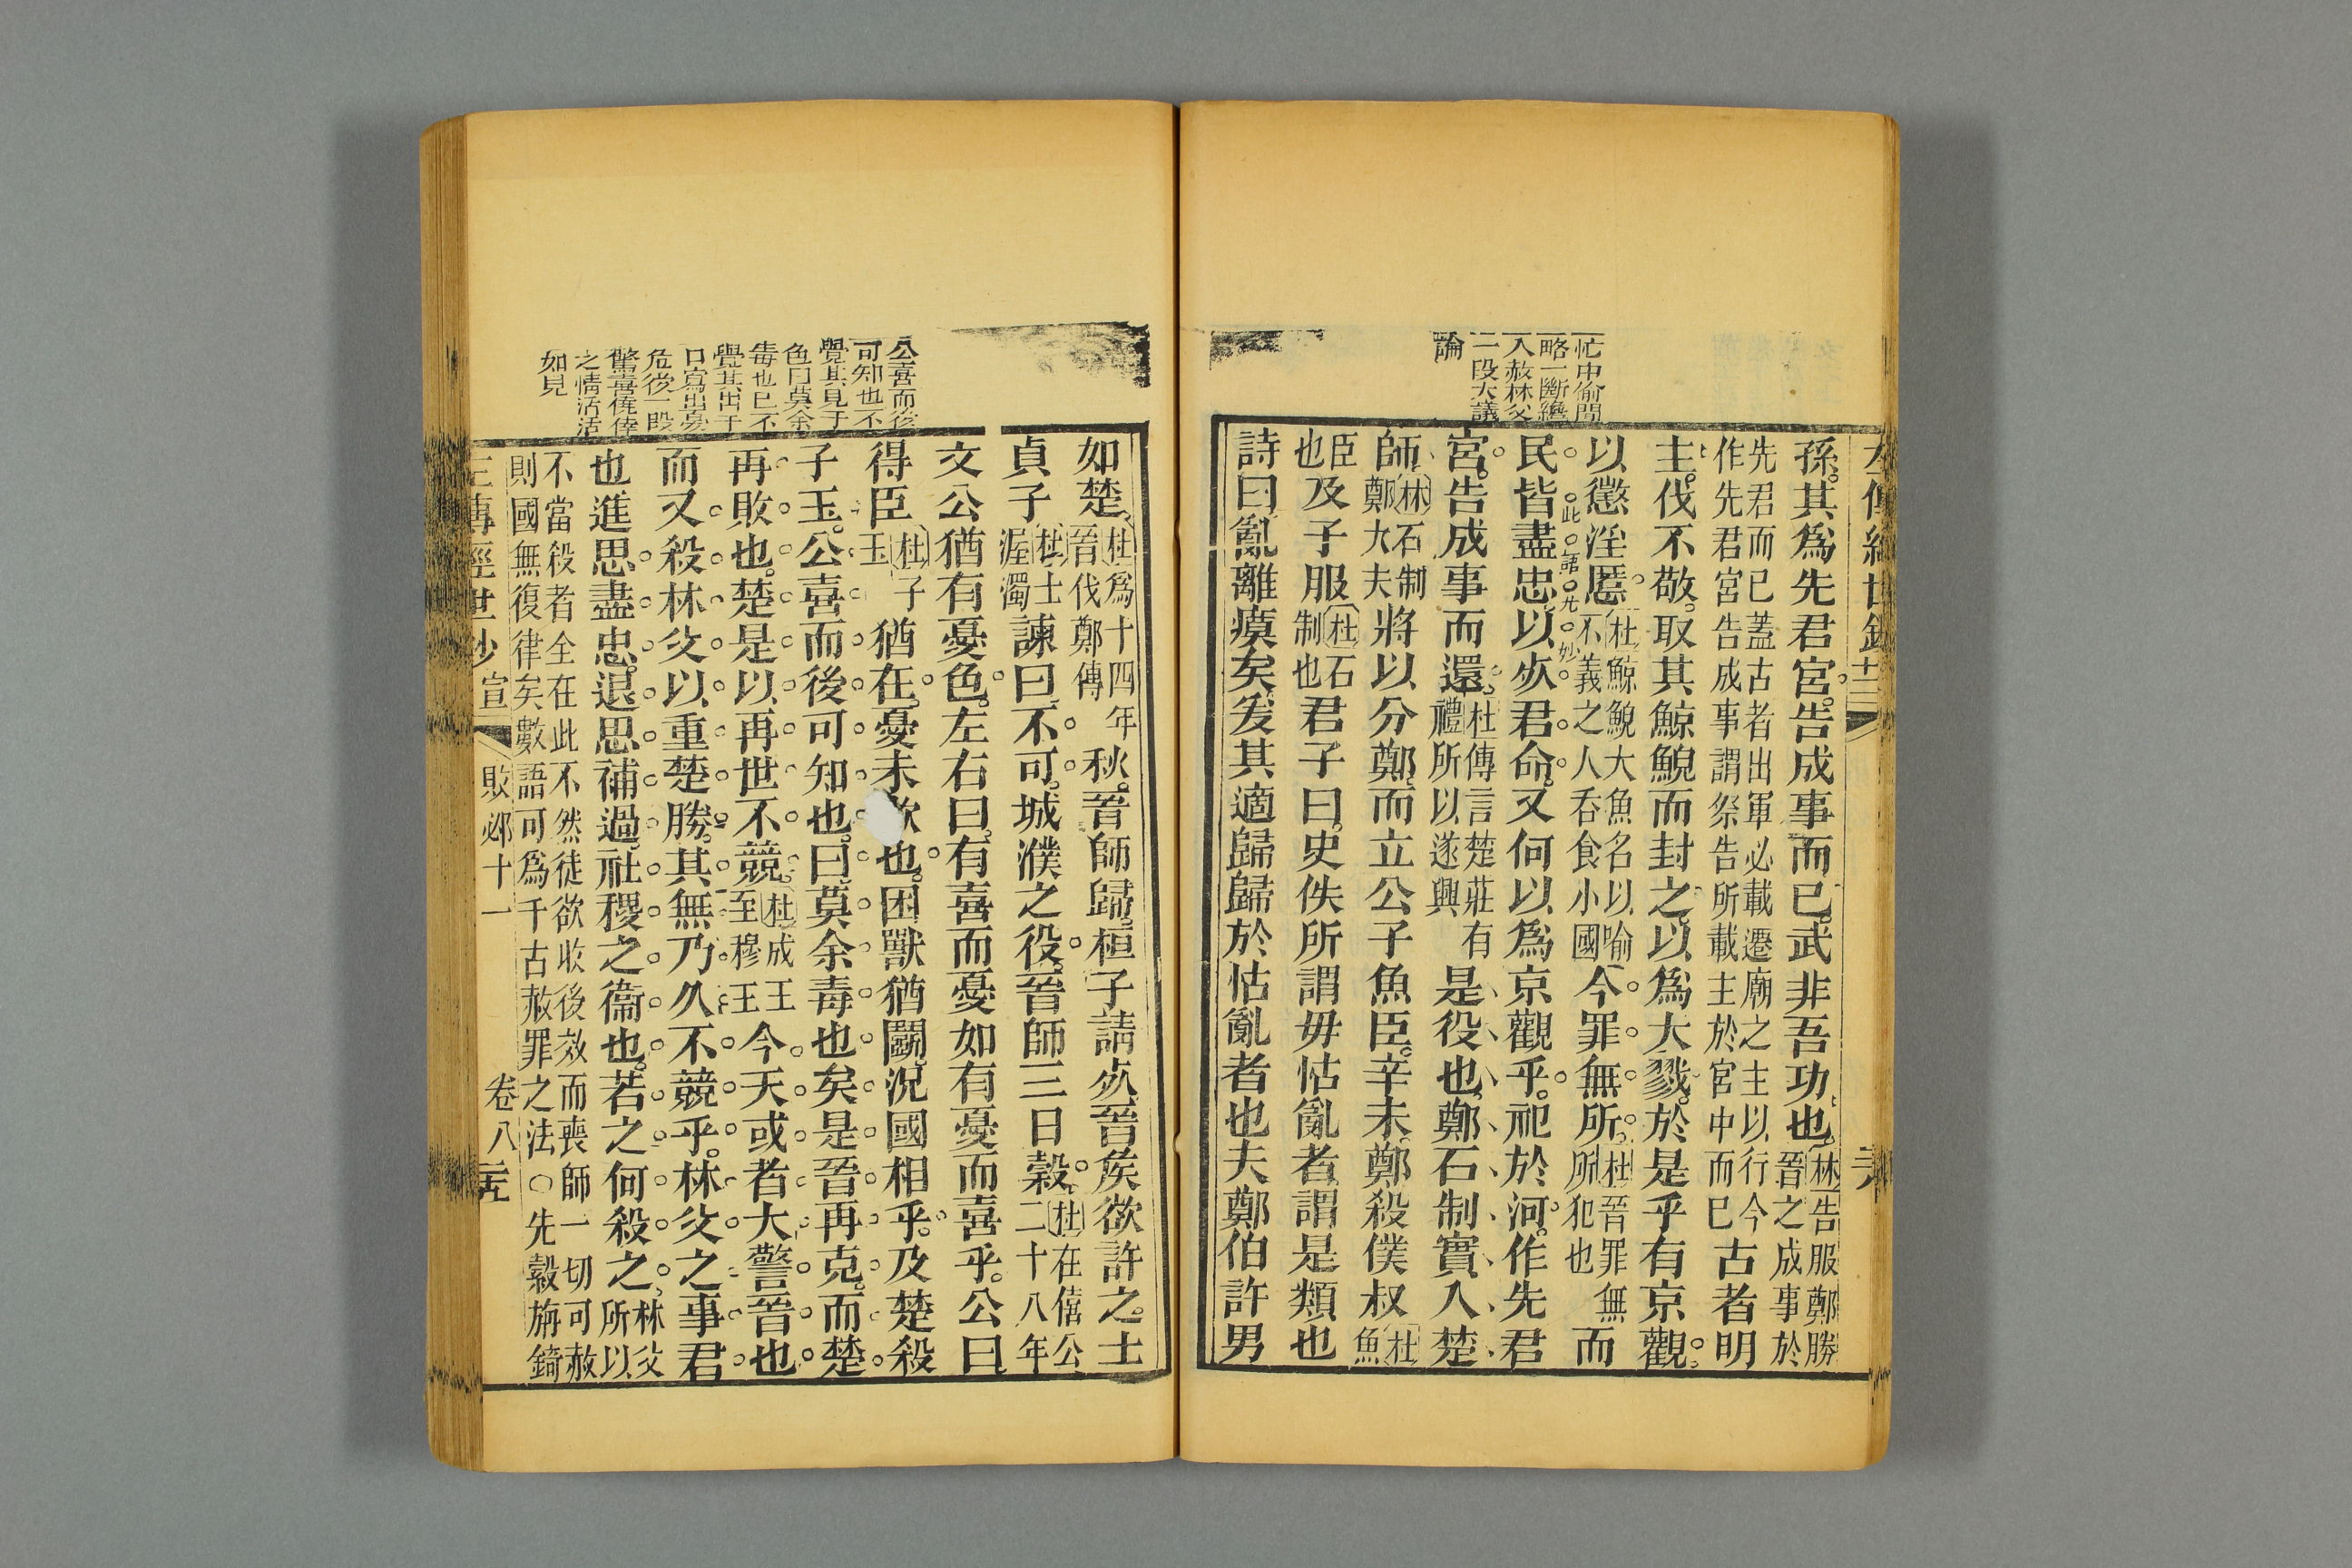 忙中偷閒
略一斷纔
入赦林父
一段大議
論
孫其爲先君宮告成事而已武非吾功也林告服鄭勝
晉之成事於
先君而已蓋古者出軍必載遷廟之主以行今
作先君宮告成事謂祭告所載主於宮中而已古者明
主伐不敬取其鯨鯢而封之以爲大戮於是乎有京觀
以懲淫慝杜鯨鯢大魚名以喻
不義之人吞食小國今罪無所杜晉罪無
所犯也而
此語尤妙
民皆盡忠以死君命又何以爲京觀乎祀於河作先君
宮告成事而還杜傳言楚莊有
禮所以遂興是役也鄭石制實入楚
師林石制
鄭大夫將以分鄭而立公子魚臣辛未鄭殺僕叔杜
魚
臣
也及子服杜石
制也君子曰史佚所謂毋怙亂者謂是類也
詩曰亂離瘼矣爰其適歸歸於怙亂者也夫鄭伯許男
如楚杜爲十四年
晉伐鄭傳秋晉師歸桓子請死晉侯欲許之士
貞子杜士
渥濁諫曰不可城濮之役晉師三日榖杜在僖公
二十八年
文公猶有憂色左右曰有喜而憂如有憂而喜乎公曰
得臣杜子
玉猶在憂未歇也困獸猶鬭況國相乎及楚殺
子玉公喜而後可知也曰莫余毒也矣是晉再克而楚
再敗也楚是以再世不競杜成王
至穆王今天或者大警晉也
而又殺林父以重楚勝其無乃久不競乎林父之事君
也進思盡忠退思補過社稷之衞也若之何殺之林父
所以
不當殺者全在此不然徒欲收後效而喪師一切可赦
則國無復律矣數語可爲千古赦罪之法○先縠旃錡
敗必十一
卷八
公喜而後
可知也不
覺其見于
色曰莫余
毒也已不
覺其出于
口寫出憂
危後一段
驚喜僥倖
之情活活
如見